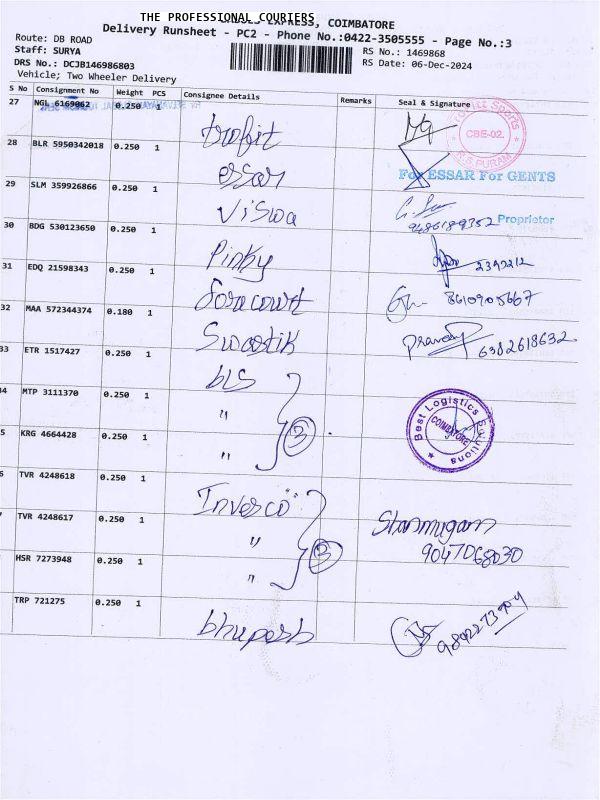 THE PROFESSIONAL COURIERS
EXPRESS, COIMBATORE
Delivery Runsheet - PC2 - Phone No.:0422-3505555 - Page No.:3
Route: DB ROAD
Staff: SURYA
RS No.: 1469868
DRS No.: DCJB146986803
RS Date: 06-Dec-2024
Vehicle; Two Wheeler Delivery
S No Consignment No Weight PCS Consignee Details Remarks Seal & Signature
27 NGL 6169062 0.250 1 trofit
CBE-02.
R.S. PURAM
28 BLR 5950342018 0.250 1 essar For ESSAR For GENTS
29 SLM 359926866 0.250 1 Viswa 9486189352 Proprietor
30 BDG 530123650 0.250 1 Pinky 2390212
31 EDQ 21598343 0.250 1 8610905667
32 MAA 572344374 0.180 1 Swastik 6382618632
33 ETR 1517427 0.250 1 bLS
34 MTP 3111370 0.250 1 "
Best Logistics Solutions
COIMBATORE
5 KRG 4664428 0.250 1 " 3
6 TVR 4248618 0.250 1 Invesco
7 TVR 4248617 0.250 1 " Shanmugam
9047068030
HSR 7273948 0.250 1 " 3
TRP 721275 0.250 1